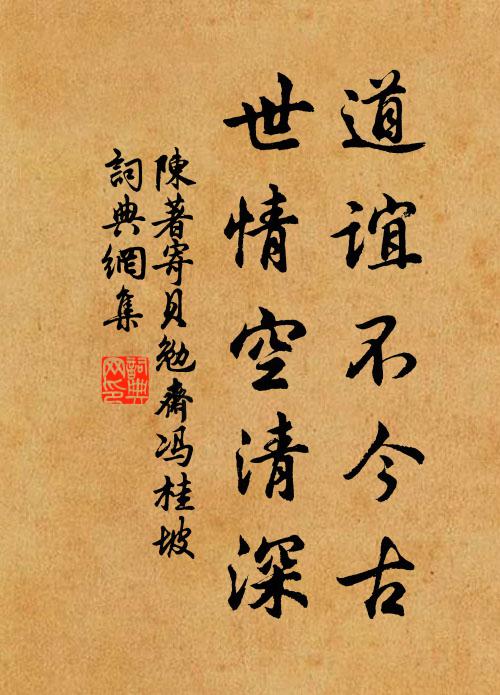 道誼不今古
世情空清深
陳著寄貝勉齋馮桂坡
詞典網集
詞典
网印